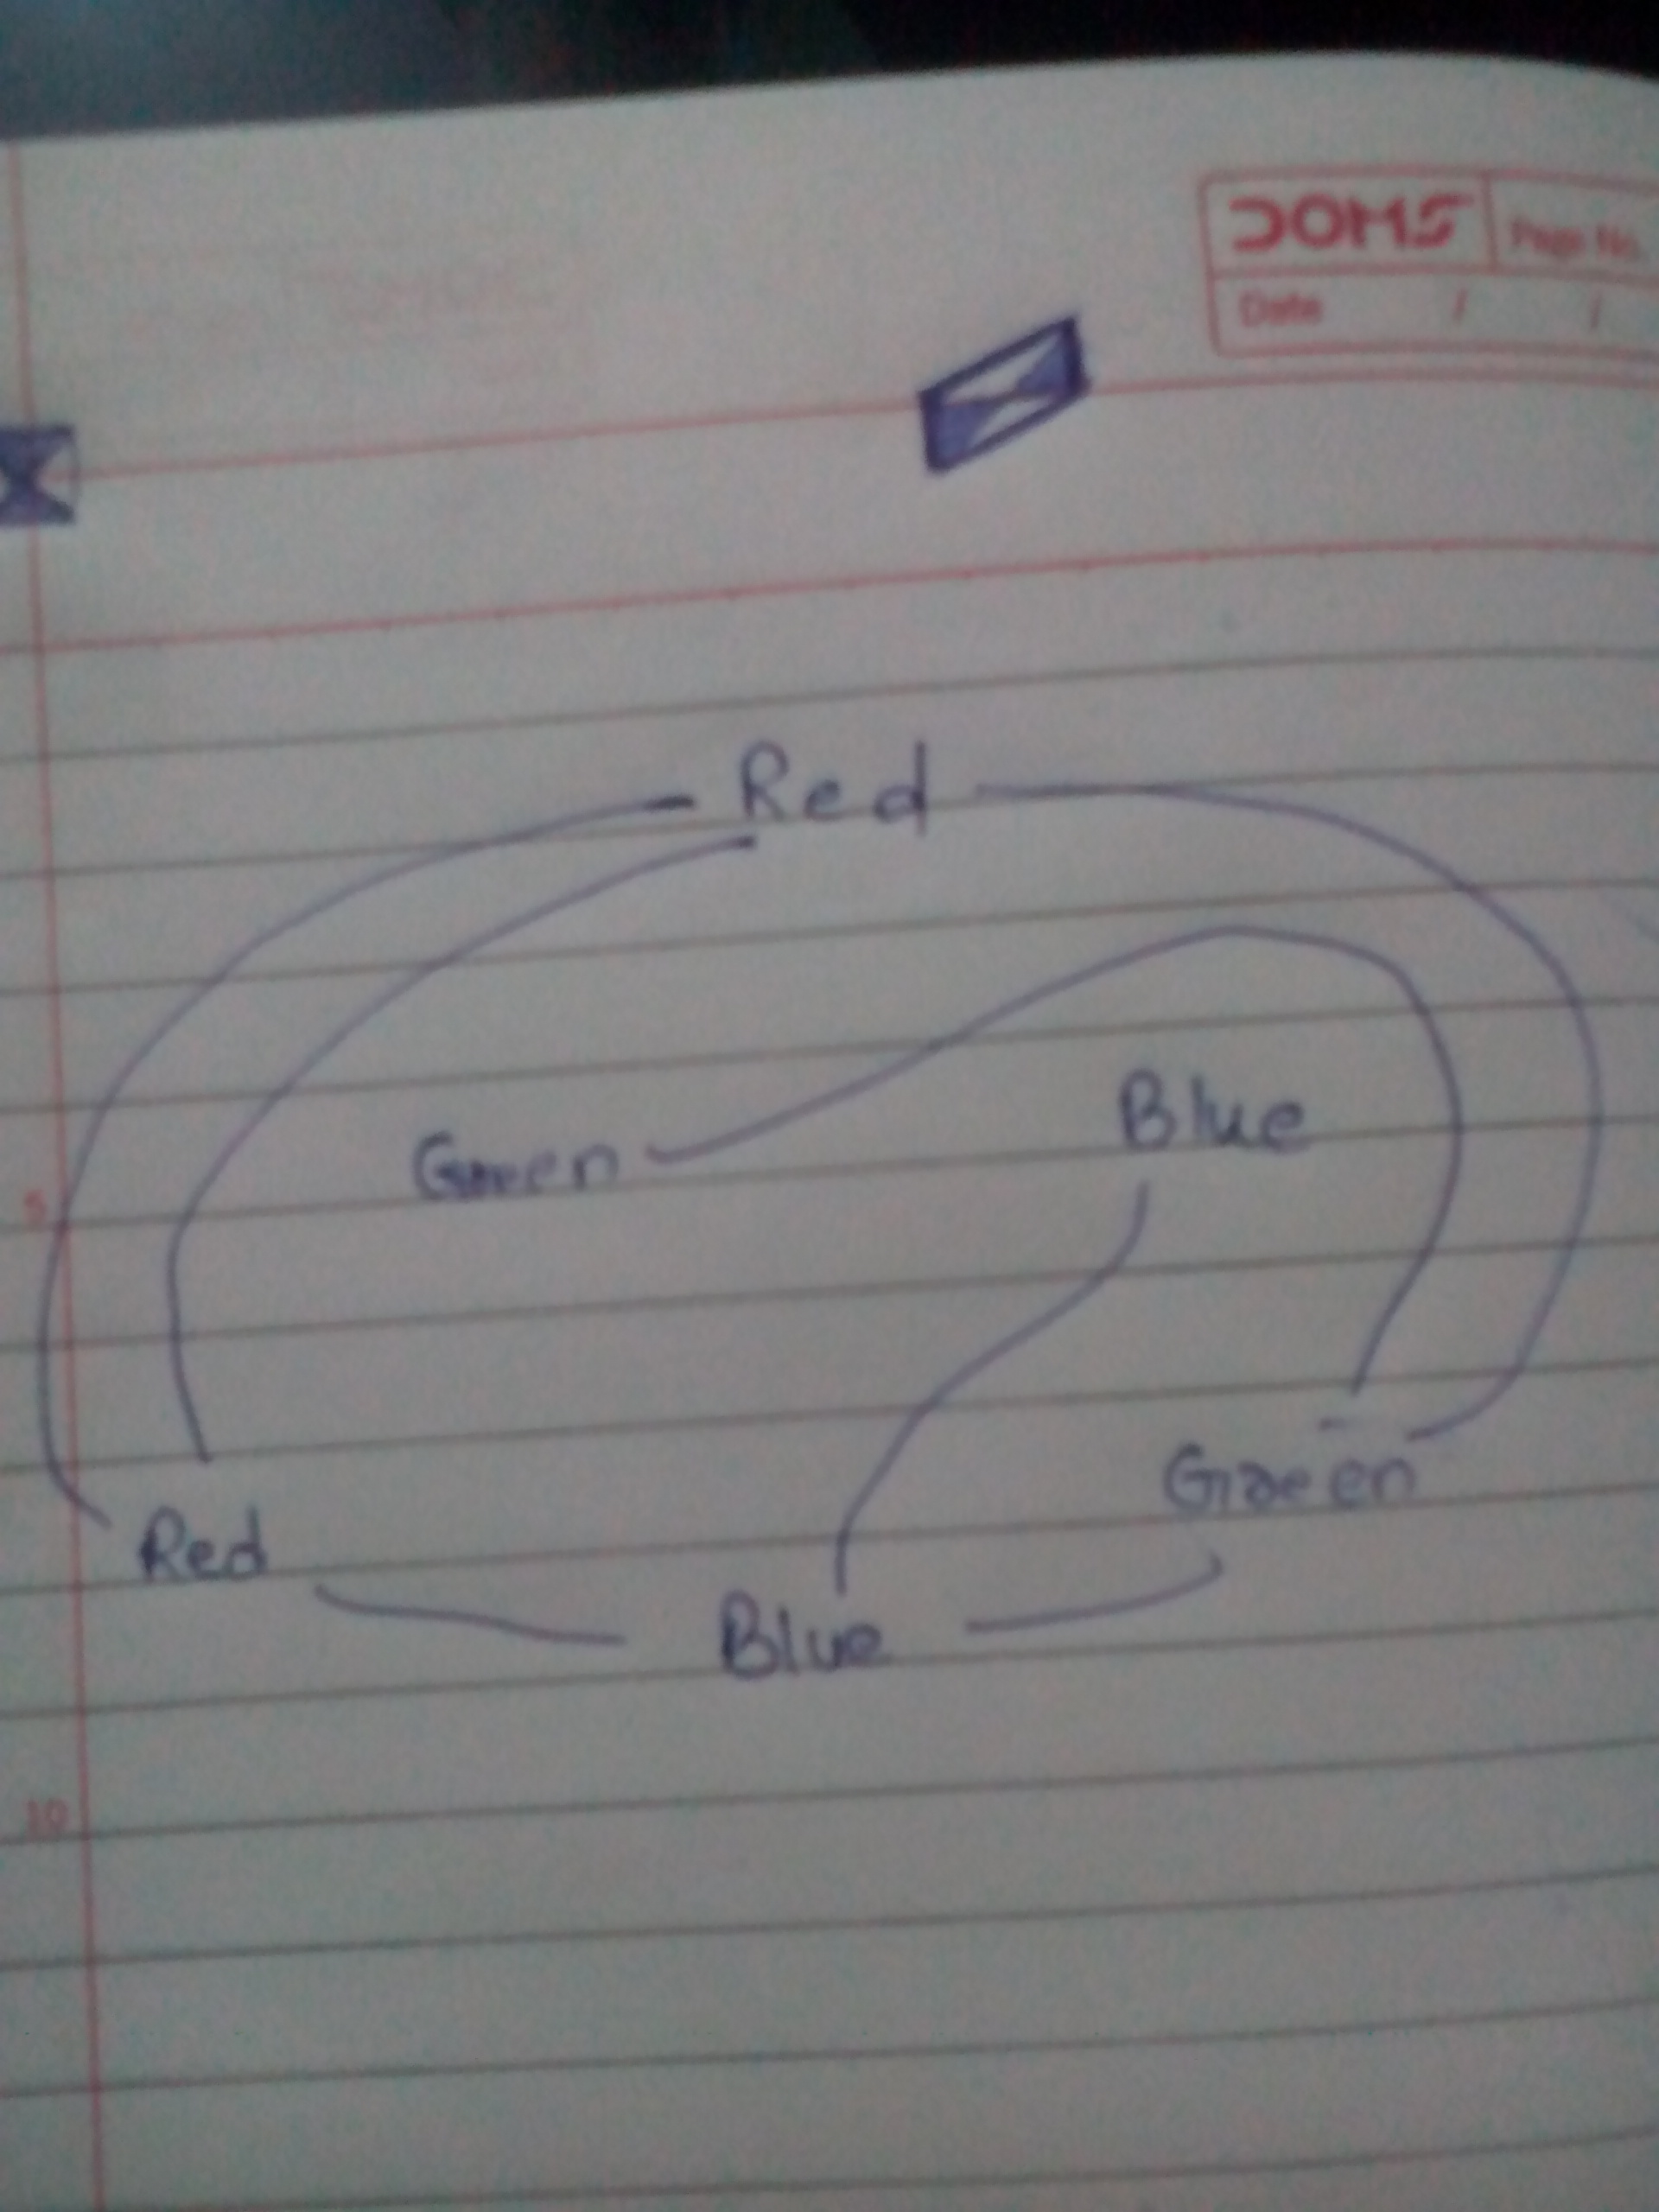 DOMS Page No.
Date / /
Red
Green Blue
5
Green
Red
Blue
10